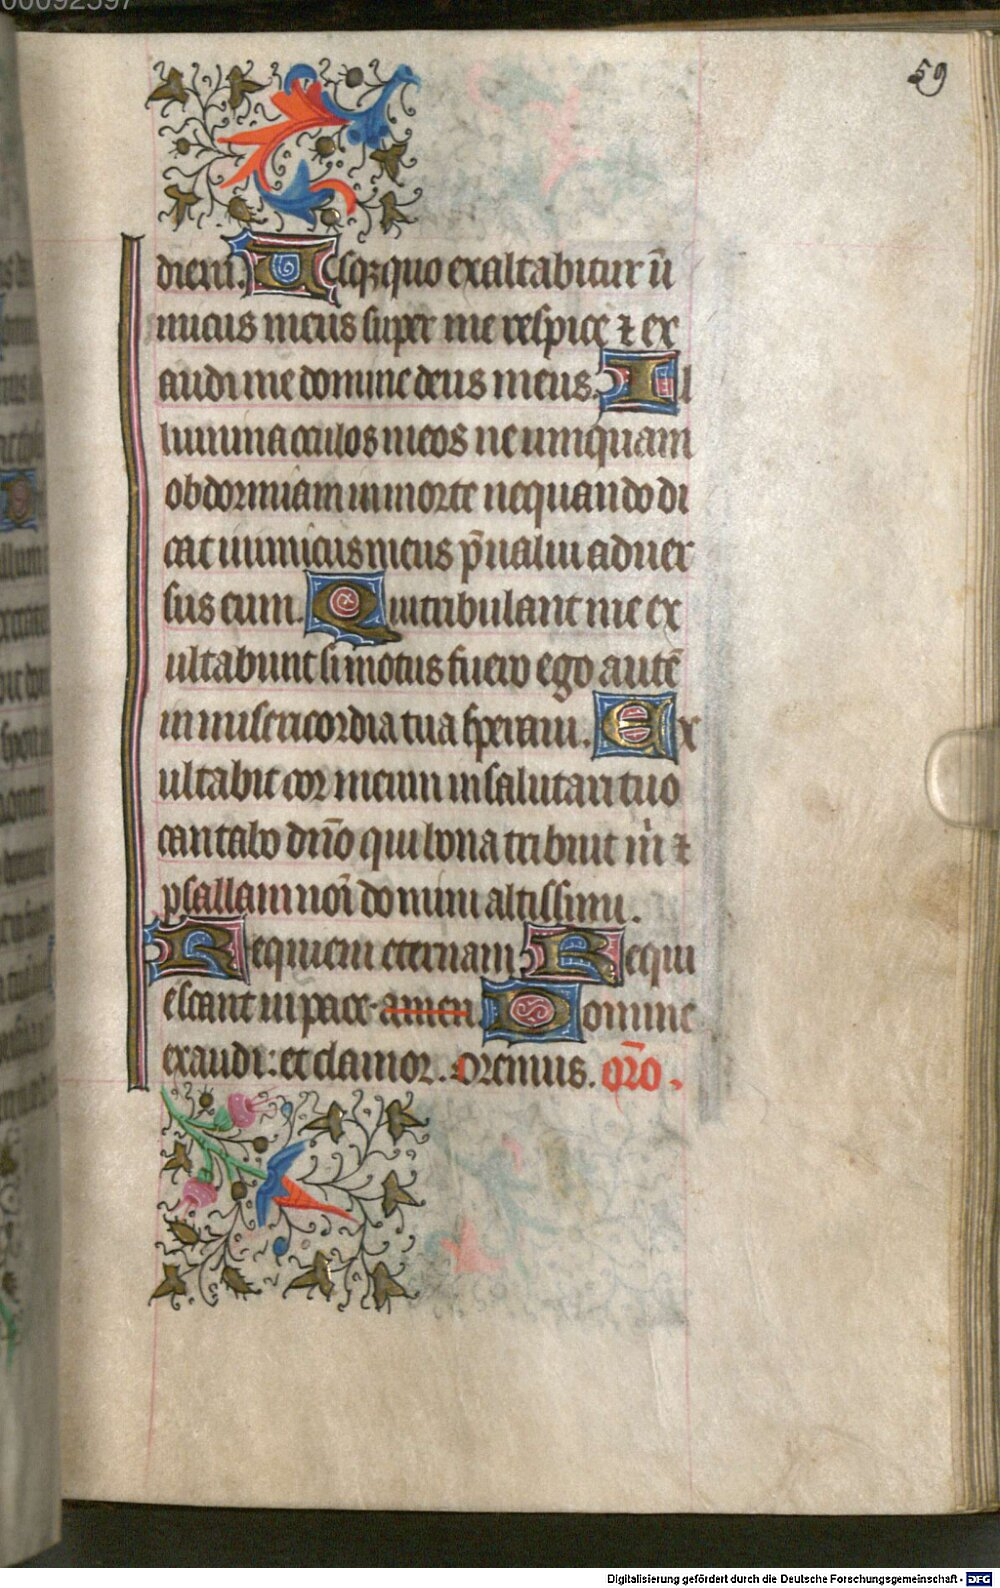 00092597
59
diem. Usqꝫquo exaltabitur in̄
imicus meus super me respice ⁊ ex
audi me domine deus meus. Il
lumina oculos meos ne umquam
obdormiam in morte nequando di
cat inimicus meus p̄ualui aduer
sus eum. Qui tribulant me ex
ultabunt si motus fuero ego autē
in misericordia tua speraui. Ex
ultabit cor meum in salutari tuo
cantabo dn̄o qui bona tribuit m̄i ⁊
psallam noī domini altissimi.
Requiem eternam Requi
escant in pace. amen. Domine
exaudi: et clamor. Oremus. or̄o.
Digitalisierung gefördert durch die Deutsche Forschungsgemeinschaft - DFG